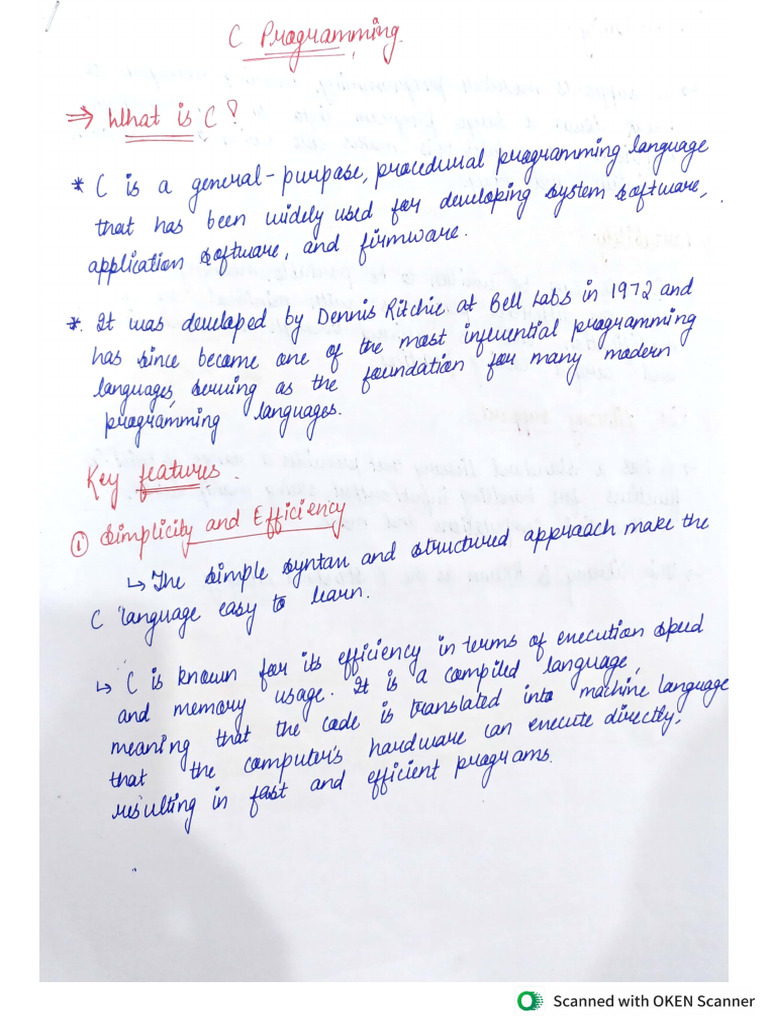 C Programming.
⇒ What is C?
* C is a general-purpose, procedural programming language
that has been widely used for developing system software,
application software, and firmware.
* It was developed by Dennis Ritchie at Bell Labs in 1972 and
has since become one of the most influential programming
languages, serving as the foundation for many modern
programming languages.
Key features.
① Simplicity and Efficiency
↳ The simple syntax and structured approach make the
C language easy to learn.
↳ C is known for its efficiency in terms of execution speed
and memory usage. It is a compiled language,
meaning that the code is translated into machine language
that the computer's hardware can execute directly,
resulting in fast and efficient programs.
Scanned with OKEN Scanner